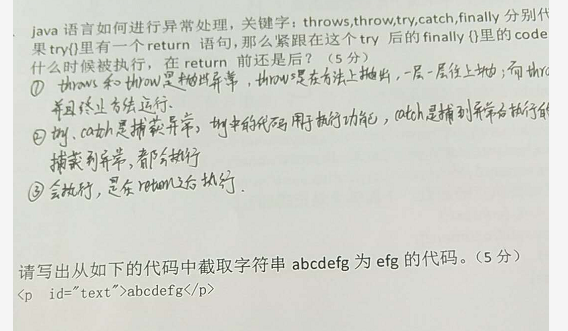 java 语言如何进行异常处理，关键字：throws,throw,try,catch,finally 分别代
果try{}里有一个return 语句，那么紧跟在这个try 后的finally {}里的code
什么时候被执行，在 return 前还是后？（5 分）
① throws 和 throw是抛出异常，throws是在方法上抛出，一层一层往上抛；而thro
并且终止方法运行.
② try、catch是捕获异常，try中的代码用于执行功能，catch是捕到异常后执行的
捕获到异常，都会执行
③ 会执行，是在return之后执行.
请写出从如下的代码中截取字符串 abcdefg 为 efg 的代码。（5 分）
<p id="text">abcdefg</p>